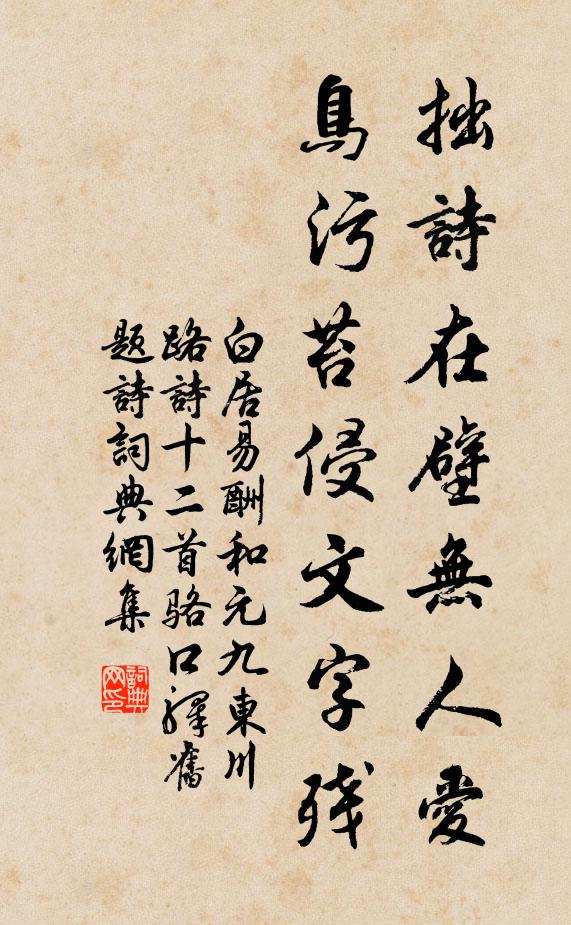 拙詩在壁無人愛
鳥污苔侵文字残
白居易酬和元九東川
路詩十二首駱口驛舊
题詩詞典網集
詞典
网印